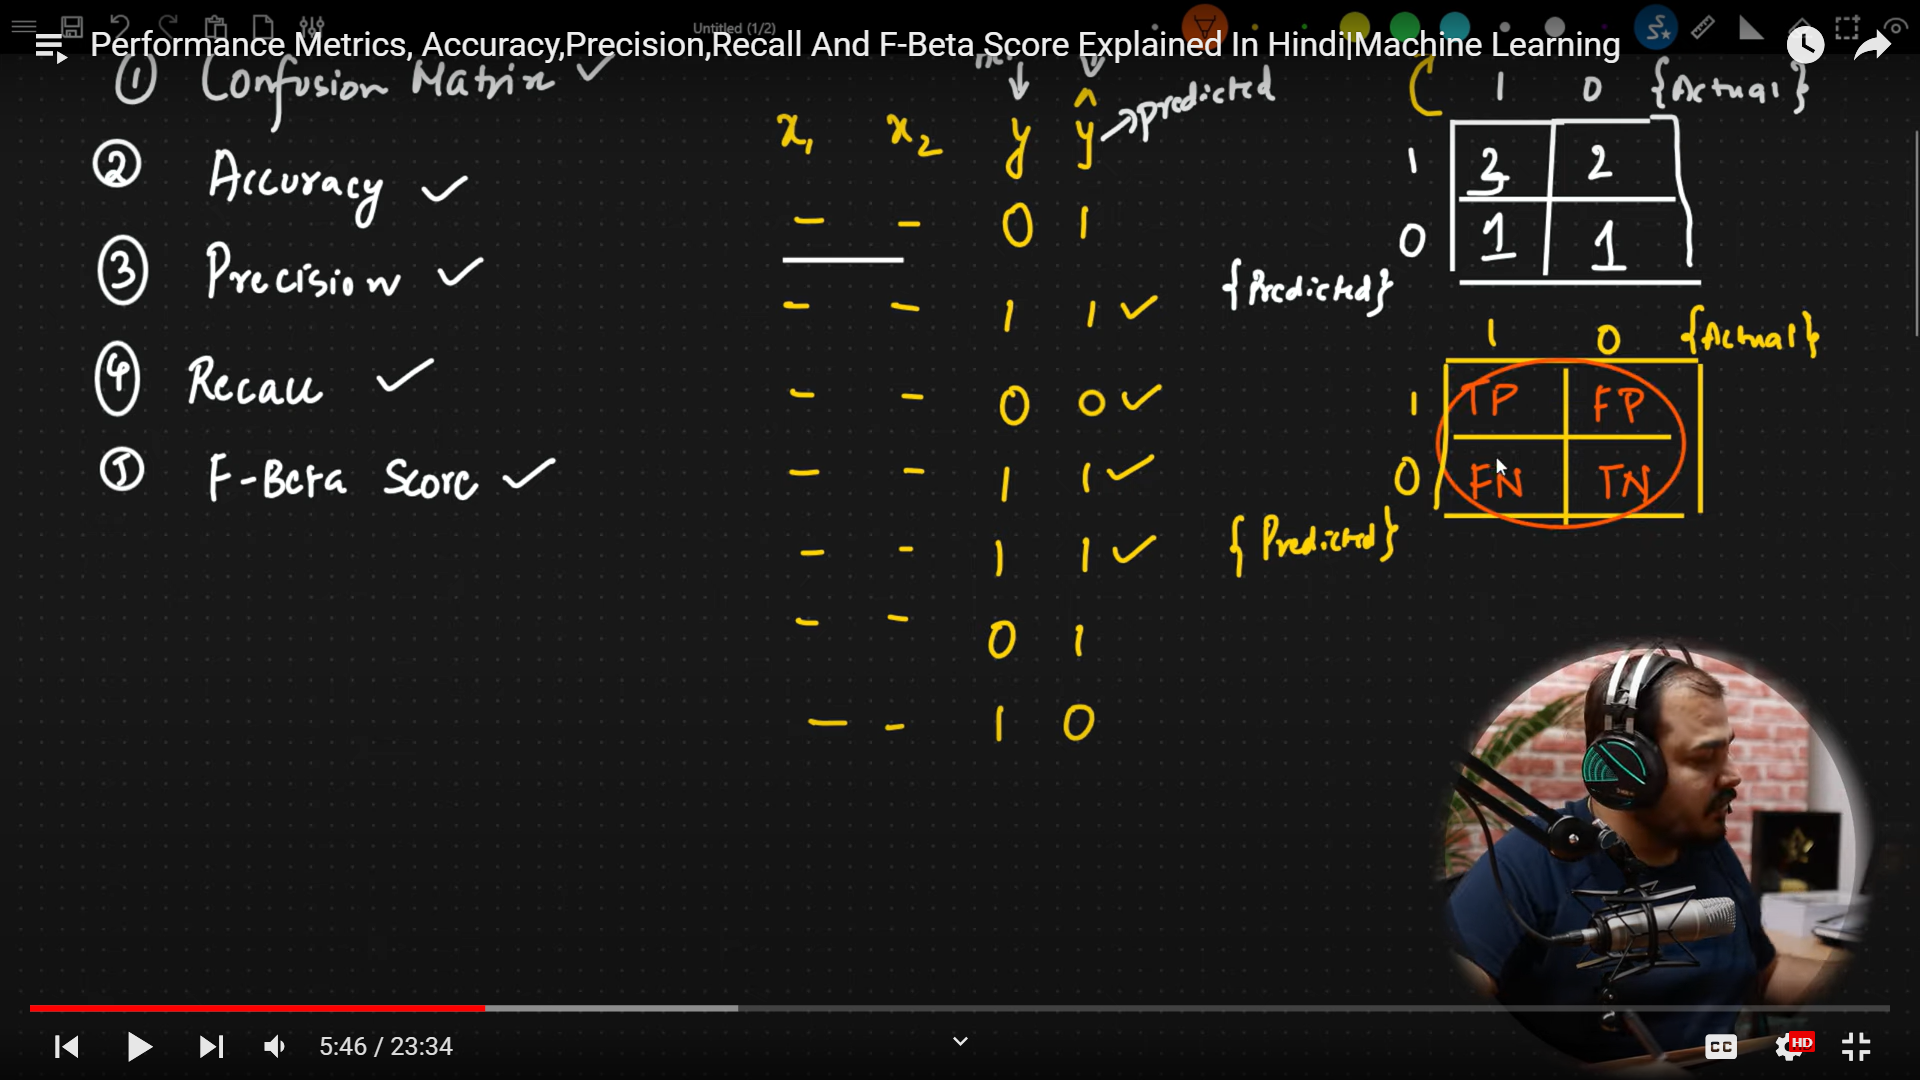 Untitled (1/2)
Performance Metrics, Accuracy,Precision,Recall And F-Beta Score Explained In Hindi|Machine Learning
① Confusion Matrix ✓
② Accuracy ✓
③ Precision ✓
④ Recall ✓
⑤ F-Beta Score ✓
x₁ x₂ y ŷ → predicted
- - 0 1
- - 1 1 ✓
- - 0 0 ✓
- - 1 1 ✓
- - 1 1 ✓
- - 0 1
- - 1 0
1 0 {Actual}
1 3 2
0 1 1
{Predicted}
1 0 {Actual}
1 TP FP
0 FN TN
{Predicted}
5:46 / 23:34
CC
HD